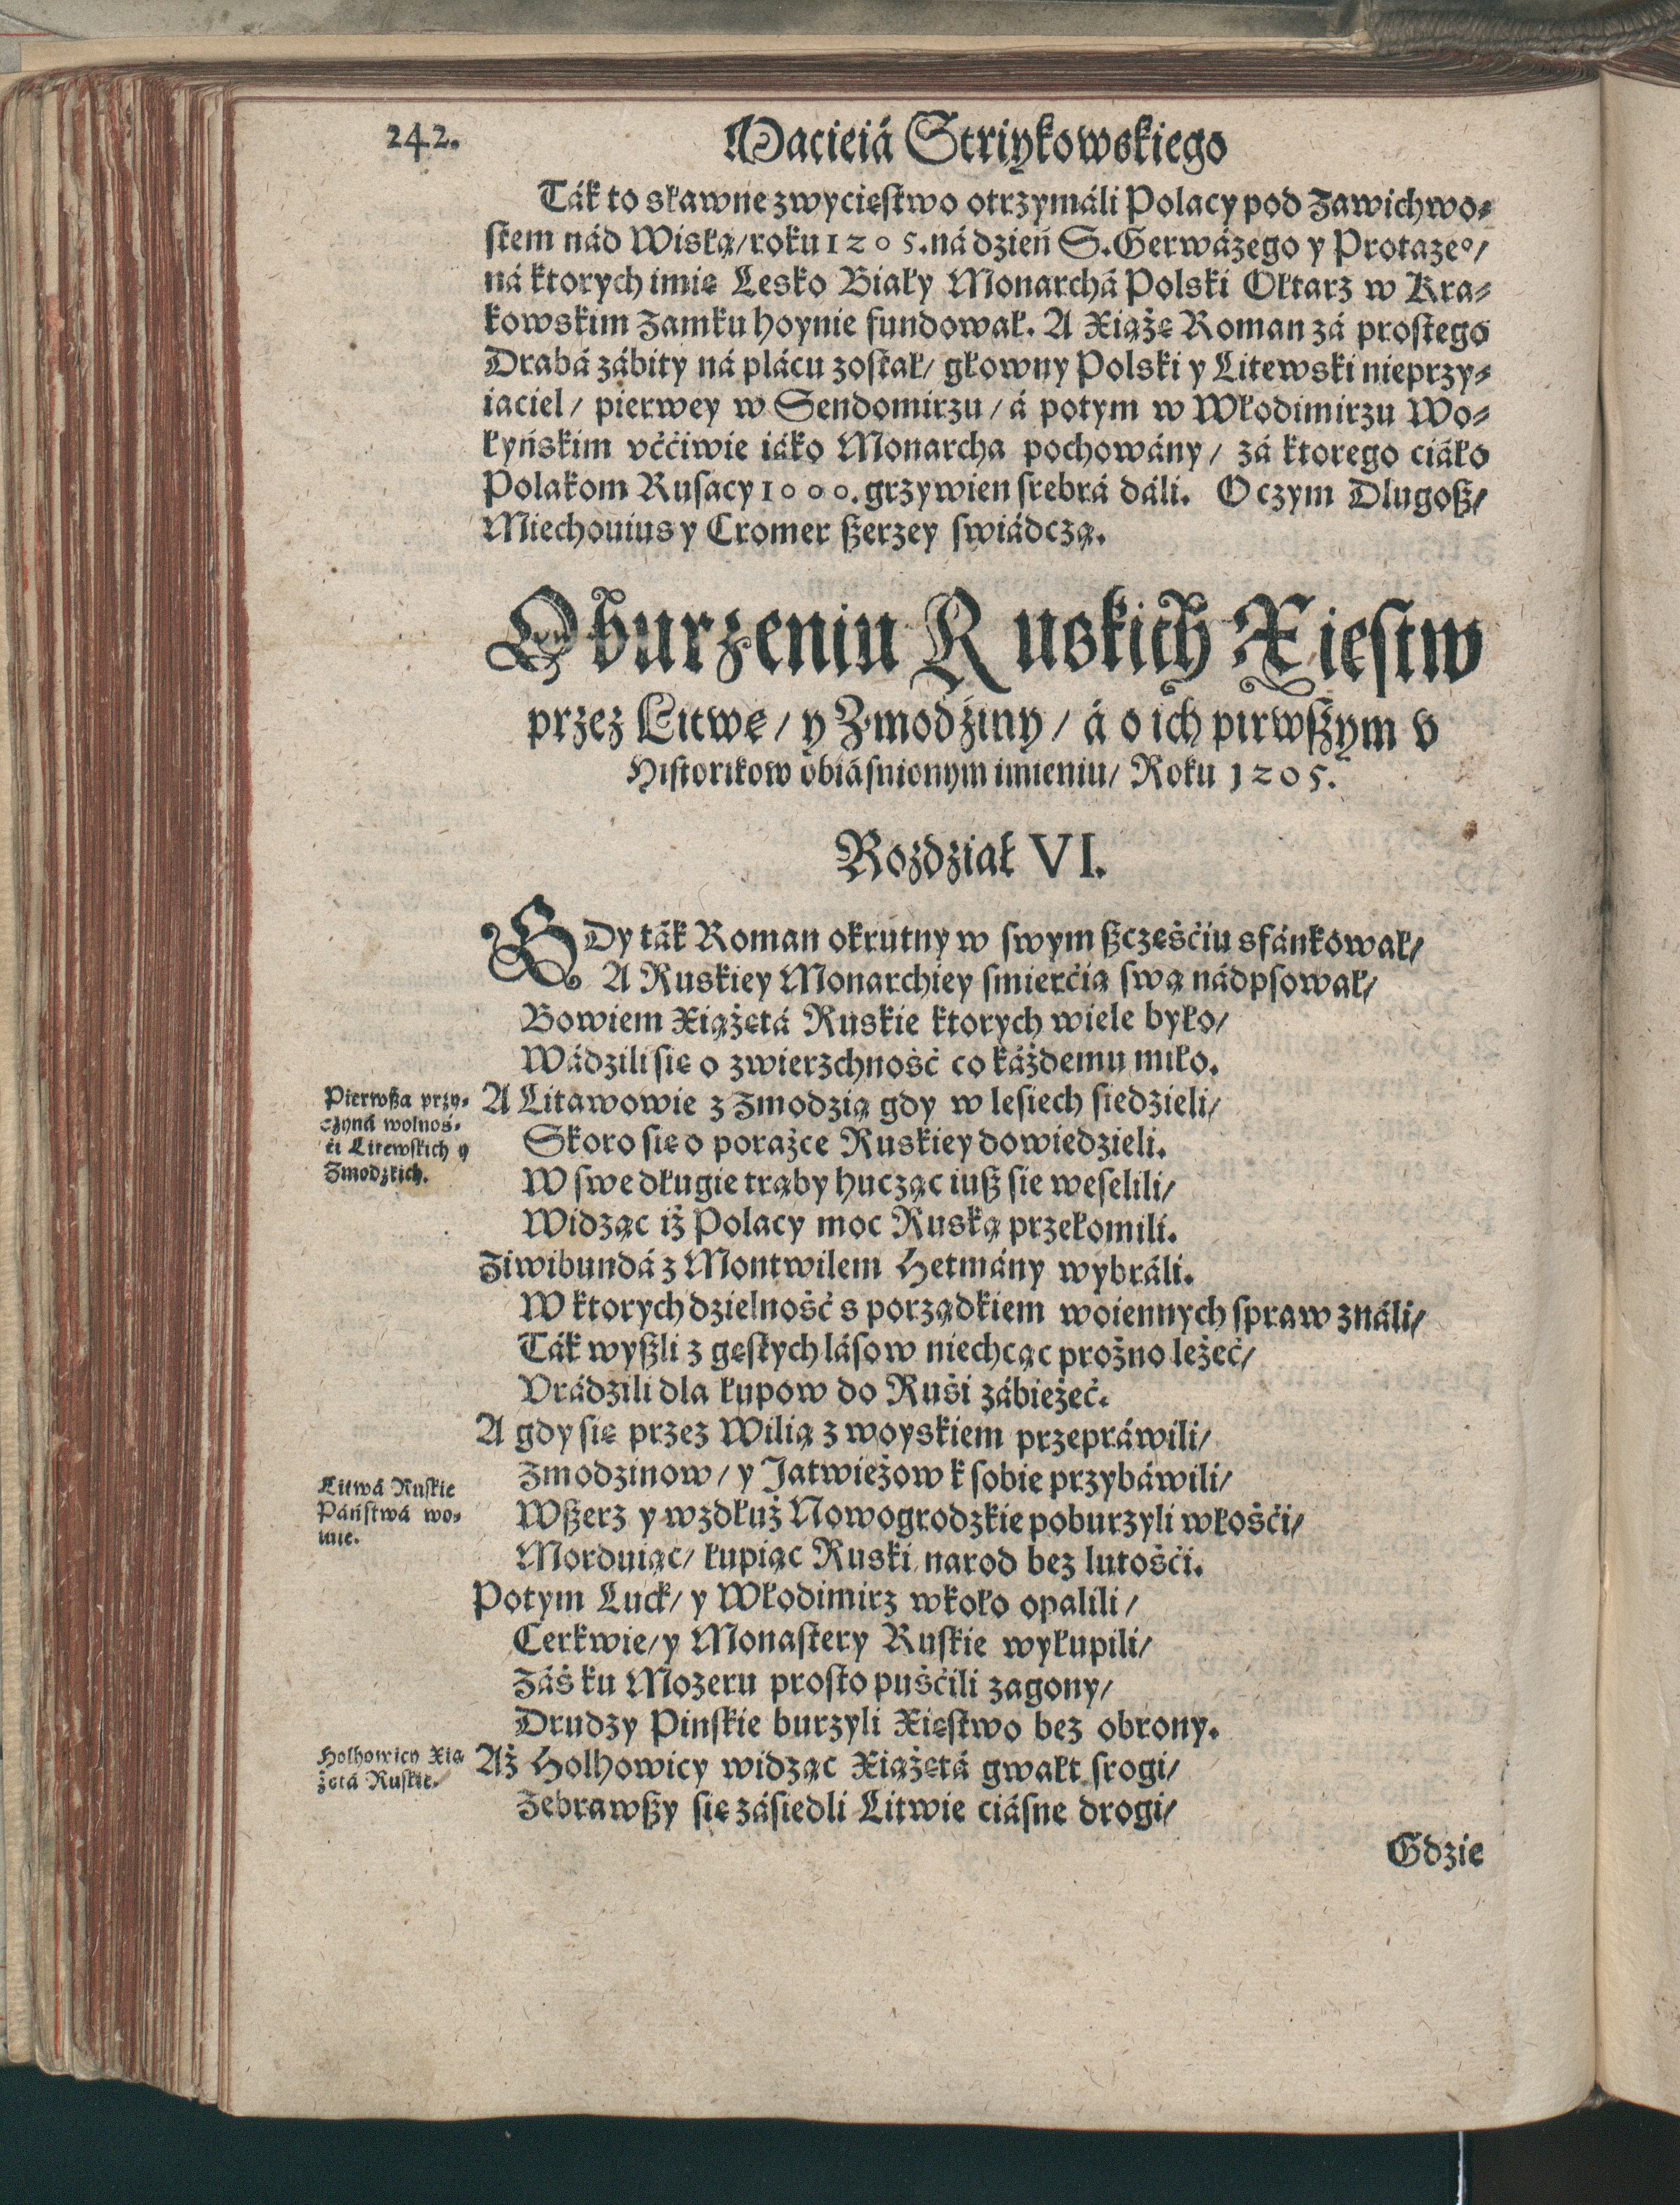 242.
Macieiá Striykowskiego
Ták to sławne zwycięstwo otrzymáli Polacy pod Zawichwo-
stem nád Wisłą/ roku 1205. ná dzień S. Gerwázego y Protazeº/
ná ktorych imię Lesko Biały Monarchá Polski Ołtarz w Kra-
kowskim Zamku hoynie fundował. A Xiążę Roman zá prostego
Drabá zábity ná plácu został/ głowny Polski y Litewski nieprzy-
iaciel/ pierwey w Sendomirzu/ á potym w Włodimirzu Wo-
łyńskim vććiwie iáko Monarcha pochowány/ zá ktorego ciáło
Polakom Rusacy 1000. grzywien srebrá dáli. O czym Dlugosz/
Miechouius y Cromer szerzey swiádczą.
O burzeniu Ruskich Xięstw
przez Litwę/ y Zmodźiny/ á o ich pirwszym v
Historikow obiásnionym imieniu/ Roku 1205.
Rozdział VI.
GDy ták Roman okrutny w swym szczęśćiu sfánkował/
A Ruskiey Monarchiey smierćią swą nádpsował/
Bowiem Xiążętá Ruskie ktorych wiele było/
Wádzili się o zwierzchność co káżdemu miło.
Pierwsza przy-
czyná wolnos-
ći Litewskich y
Zmodzkich.
A Litawowie z Zmodzią gdy w lesiech siedzieli/
Skoro się o porażce Ruskiey dowiedzieli.
W swe długie trąby hucząc iusz sie weselili/
Widząc iż Polacy moc Ruską przełomili.
Ziwibundá z Montwilem Hetmány wybráli.
W ktorych dzielność s porządkiem woiennych spraw ználi/
Ták wyszli z gęstych lásow niechcąc prożno leżeć/
Vrádzili dla łupow do Ruśi zábieżeć.
A gdy się przez Wilią z woyskiem przepráwili/
Zmodzinow/ y Jatwieżow k sobie przybáwili/
Litwá Ruskie
Páństwá wo-
iuie.
Wszerz y wzdłuż Nowogrodzkie poburzyli włośći/
Morduiąc/ łupiąc Ruski narod bez lutośći.
Potym Luck/ y Włodimirz wkoło opalili/
Cerkwie/ y Monastery Ruskie wyłupili/
Záś ku Mozeru prosto puśćili zagony/
Drudzy Pinskie burzyli Xięstwo bez obrony.
Holhowicy Xią
żętá Ruskie.
Aż Holhowicy widząc Xiążętá gwałt srogi/
Zebrawszy się zásiedli Litwie ciásne drogi/
Gdzie